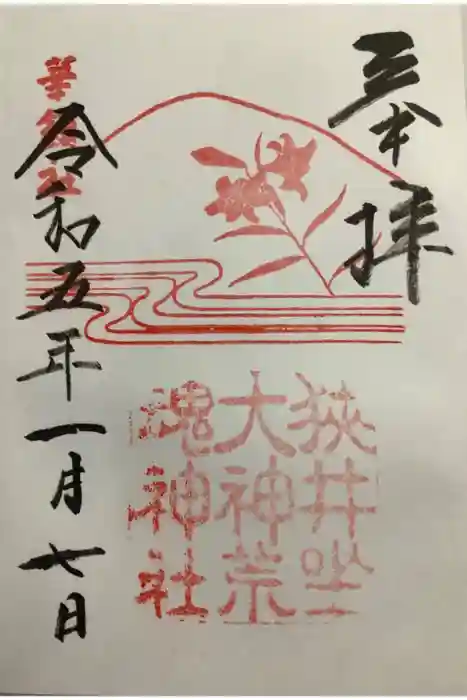 奉拝
狹井坐
大神荒
魂神社
華鎮社
令和五年一月七日